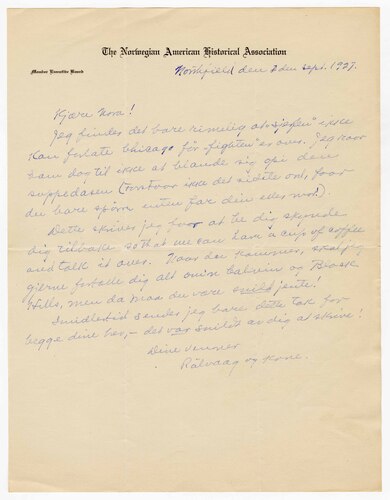 The Norwegian American Historical Association
Member Executive Board
Northfield den 2den sept. 1927.
Kjære Nora!
Jeg finder det bare rimelig at "sjefen" ikke
kan forlate Chicago før "fighten" er over. Jeg
ham dog til ikke at blande sig opi den
suppedasen (Forstår ikke det sidste ord, faar
du bare spørre enten far din eller mor!).
Dette skriver jeg for at få dig skynde
dig tilbake so that we can have a cup of coffee
and talk it over. Naar du kommer, skal jeg
gjerne fortelle dig alt om Calvin og Black
Hills, men da maa du være snild jente!
Imidlertid sender jeg bare dette tak for
begge dine brev, – det var snilt av dig at skrive!
Dine venner
Rölvaag og Kone.